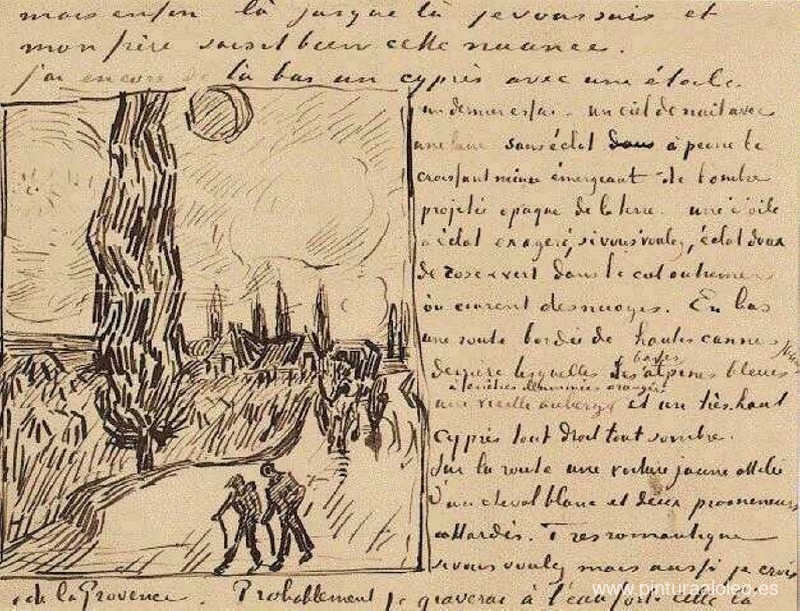 mais enfin là jusque là je vous suis et
mon frère saisit bien cette nuance.
j'ai encore de là bas un cyprès avec une étoile
un dernier essai - un ciel de nuit avec
une lune sans éclat dans à peine le
croissant mince émergeant de l'ombre
projetée opaque de la terre. une étoile
à éclat exageré, si vous voulez, éclat doux
de rose & vert dans le ciel outremer
où courent des nuages. En bas
une route bordée de hautes cannes
derrière lesquelles les basses alpines bleues
une vieille auberge à fenêtres illuminées orangée et un très haut
cyprès tout droit tout sombre.
Sur la route une voiture jaune attelée
d'un cheval blanc et deux promeneurs
attardés. Très romantique
si vous voulez mais aussi je crois
de la Provence. Probablement je graverai à l'eauforte celle là
www.pinturaaloleo.es